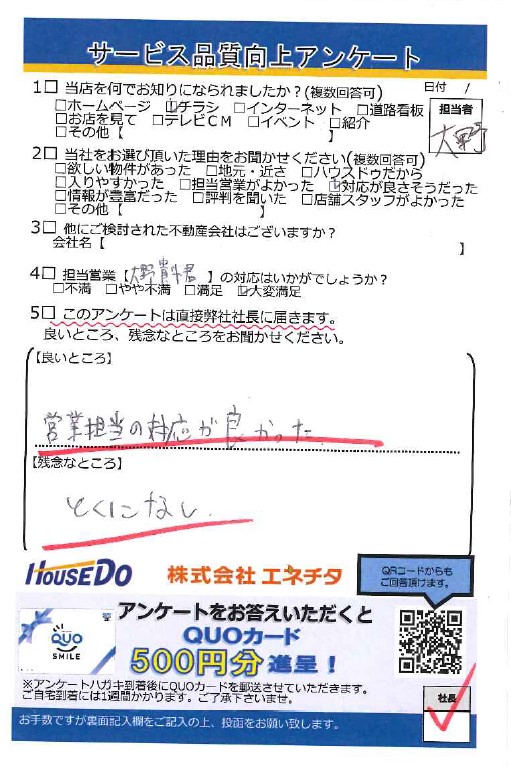 サービス品質向上アンケート
1□ 当店を何でお知りになられましたか？(複数回答可)
日付 /
□ホームページ ☑チラシ □インターネット □道路看板
□お店を見て □テレビCM □イベント □紹介
□その他【 】
担当者
大野
2□ 当社をお選び頂いた理由をお聞かせください(複数回答可)
□欲しい物件があった □地元・近さ □ハウスドゥだから
□入りやすかった □担当営業がよかった ☑対応が良さそうだった
□情報が豊富だった □評判を聞いた □店舗スタッフがよかった
□その他【 】
3□ 他にご検討された不動産会社はございますか？
会社名【 】
4□ 担当営業【大野貴 君 】の対応はいかがでしょうか？
□不満 □やや不満 □満足 ☑大変満足
5□ このアンケートは直接弊社社長に届きます。
良いところ、残念なところをお聞かせください。
【良いところ】
営業担当の対応が良かった
【残念なところ】
とくになし.
HOUSEDO 株式会社 エネチタ
QRコードからも
ご回答頂けます。
アンケートをお答えいただくと
QUOカード
500円分 進呈！
QUO
SMILE
※アンケートハガキ到着後にQUOカードを郵送させていただきます。
ご自宅到着には1週間かかります。ご了承下さいませ。
社長
お手数ですが裏面記入欄をご記入の上、投函をお願い致します。